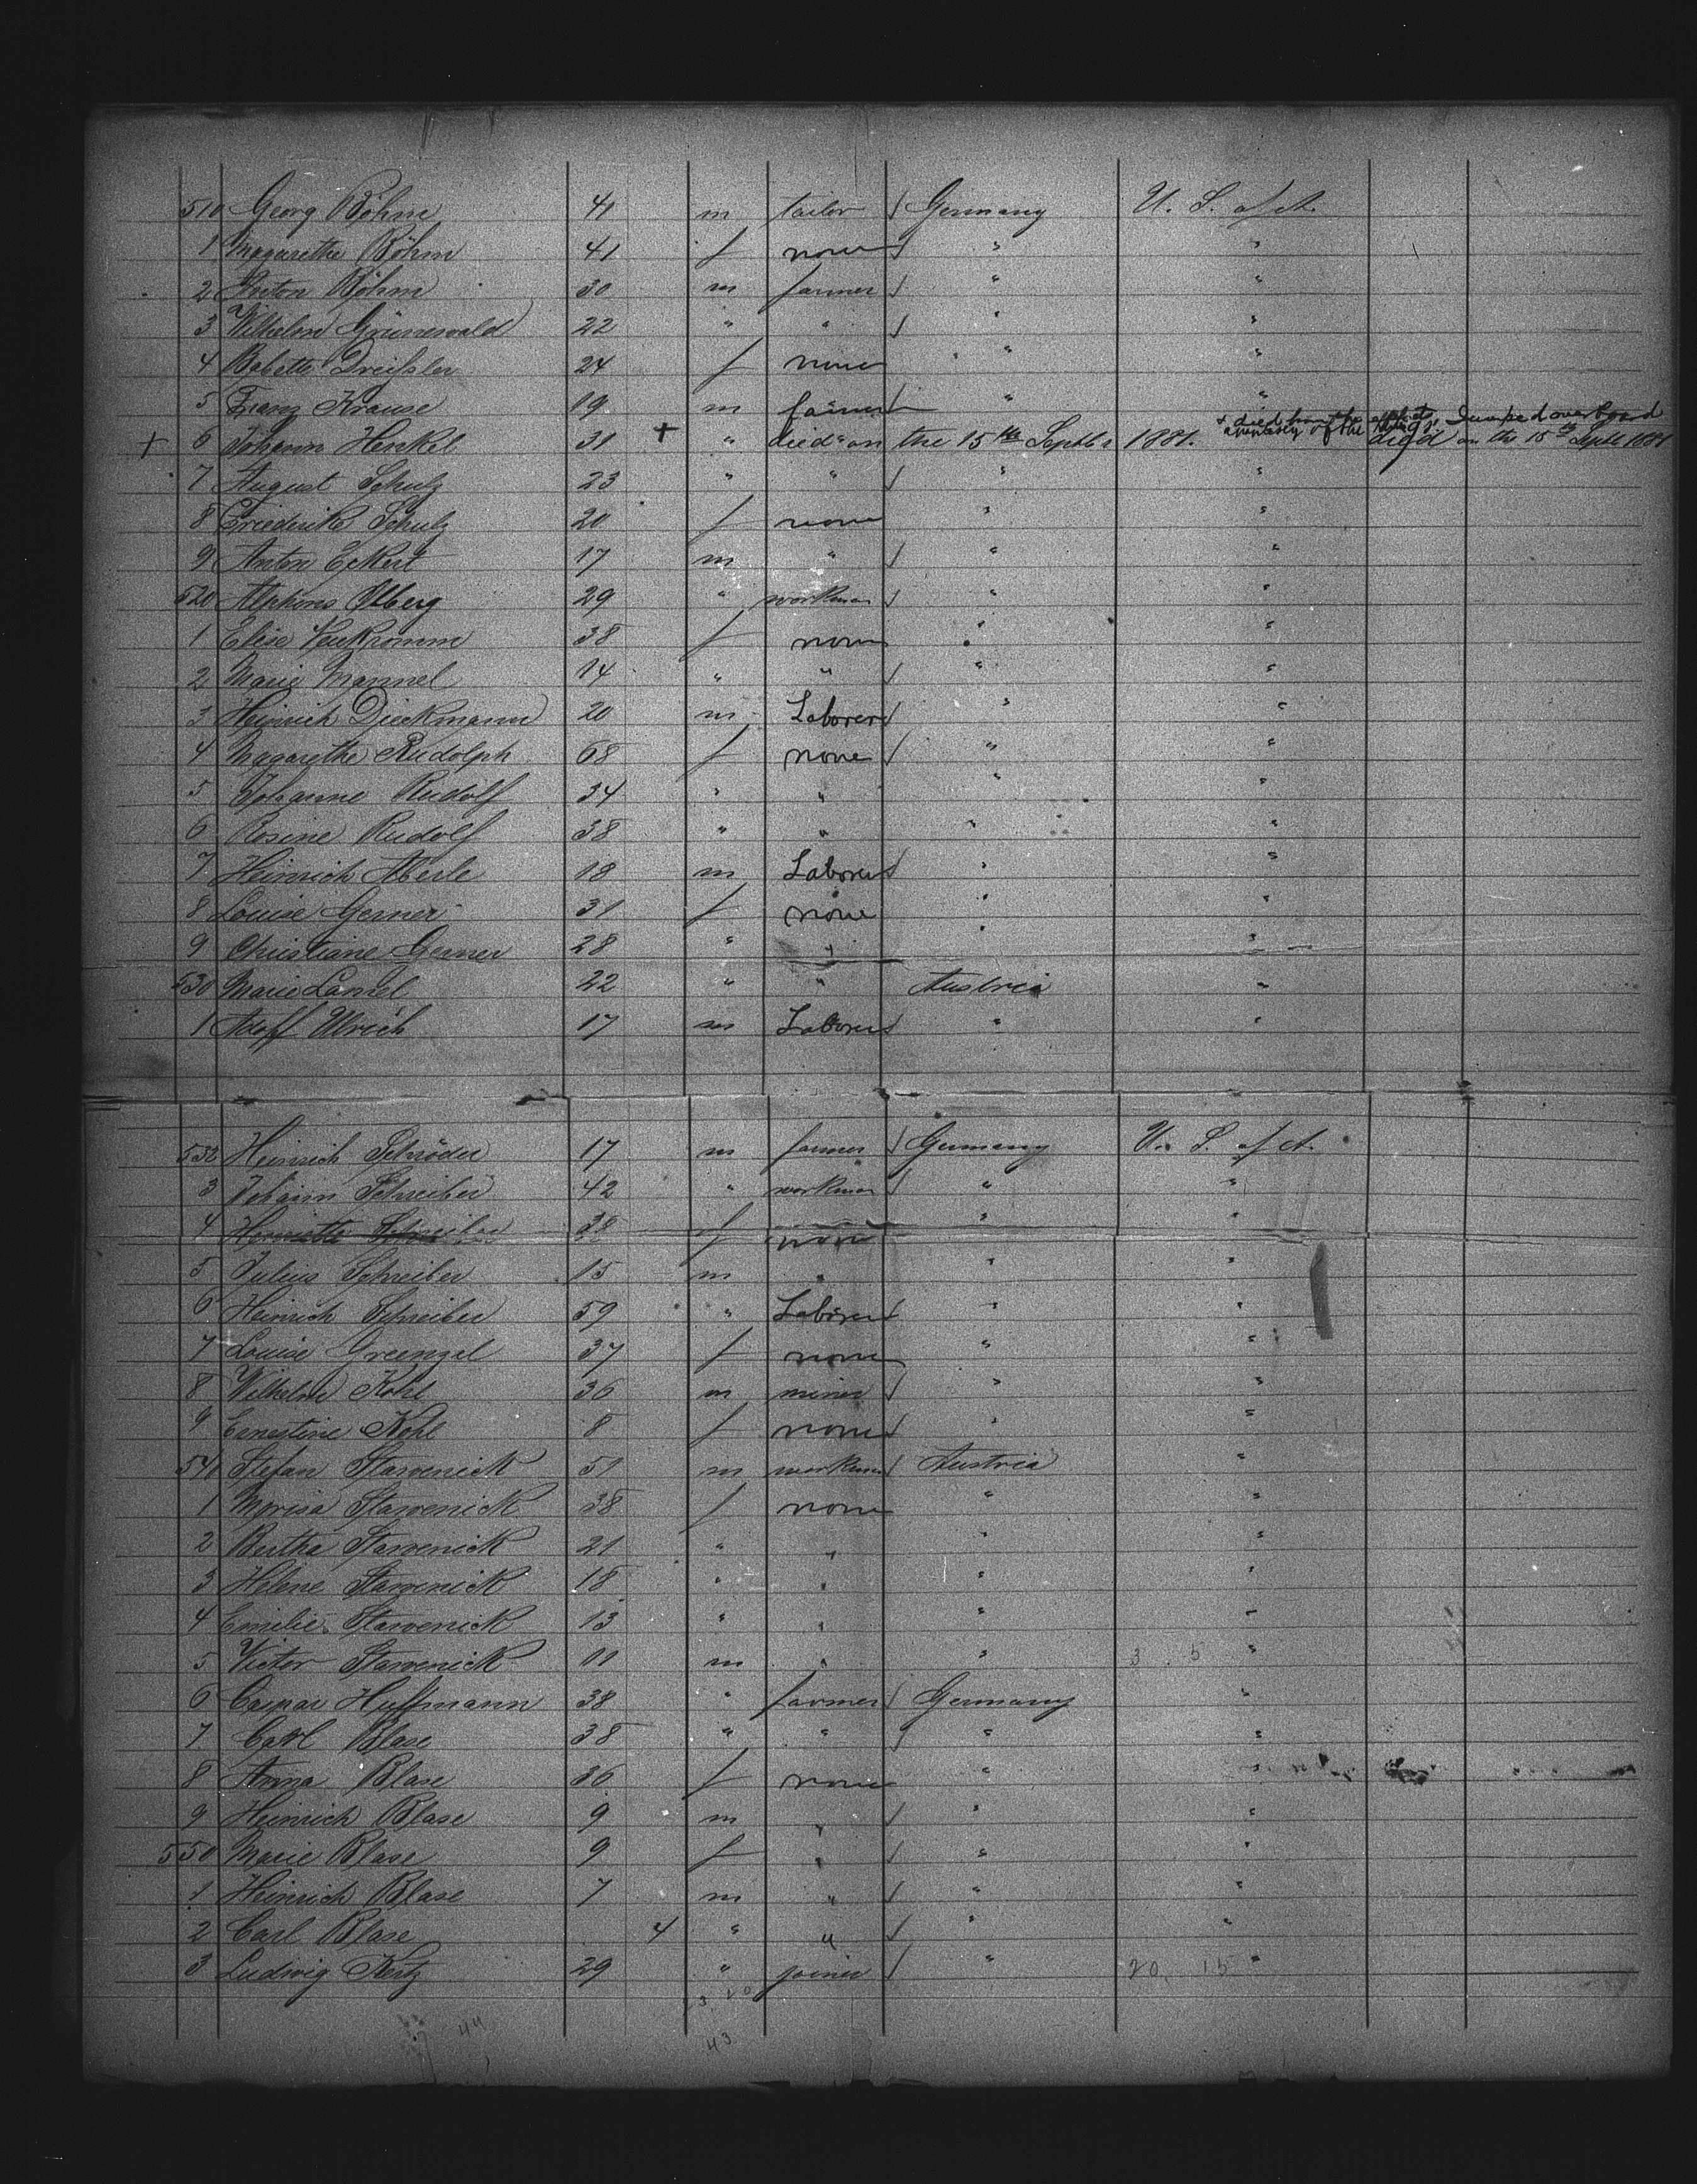 510 Georg Böhm 41 m tailor Germany U. S. of A.
1 Magarethe Böhm 41 f none " "
2 Anton Böhm 30 m farmer " "
3 Wilhelm Grünewald 22 " " " "
4 Babette Dreißler 24 f none " "
5 Franz Krause 19 m farmer " "
+ 6 Johann Henkel 31 + " died on the 15th Septbr 1881. died on the 15th Septb 1881
Jumped overboard
7 August Schulz 23 " " " "
8 Friederike Schulz 20 f none " "
9 Anton Eckert 17 m " " "
520 Alphons Olberg 29 " workman " "
1 Elise 38 f none " "
2 Marie Mannel 14 " " " "
3 Heinrich Dieckmann 20 m Laborer " "
4 Magarethe Rudolph 68 f none " "
5 Johanne Rudolf 34 " " " "
6 Rosine Rudolf 38 " " " "
7 Heinrich Aberle 18 m Laborer " "
8 Louise Gerner 31 f none " "
9 Christiane Gerner 28 " " " "
530 Marie Lamel 22 " " Austria "
1 Adolf Ulrich 17 m Laborer " "
532 Heinrich Schröder 17 m farmer Germany U. S. of A.
3 Johann Schreiber 42 " workman " "
4 Henriette Schreiber 38 f none " "
5 Julius Schreiber 15 m " " "
6 Heinrich Schreiber 59 " Laborer " "
7 Louise Greenzel 37 f none " "
8 Wilhelm Kohl 36 m miner " "
9 Ernestine Kohl 8 f none " "
540 Stefan Stawenick 51 m workman Austria "
1 Morisa Stawenick 38 f none " "
2 Bertha Stawenick 21 " " " "
3 Helene Stawenick 18 " " " "
4 Emilie Stawenick 13 " " " "
5 Victor Stawenick 11 m " " 3 . 5 "
6 Caspar Huffmann 38 " farmer Germany "
7 Carl Blase 38 " " " "
8 Anna Blase 36 f none " "
9 Heinrich Blase 9 m " " "
550 Marie Blase 9 f " " "
1 Heinrich Blase 7 m " " "
2 Carl Blase 4 " " " "
3 Ludwig Keitz 29 " joiner " 20. 15 "
44 43